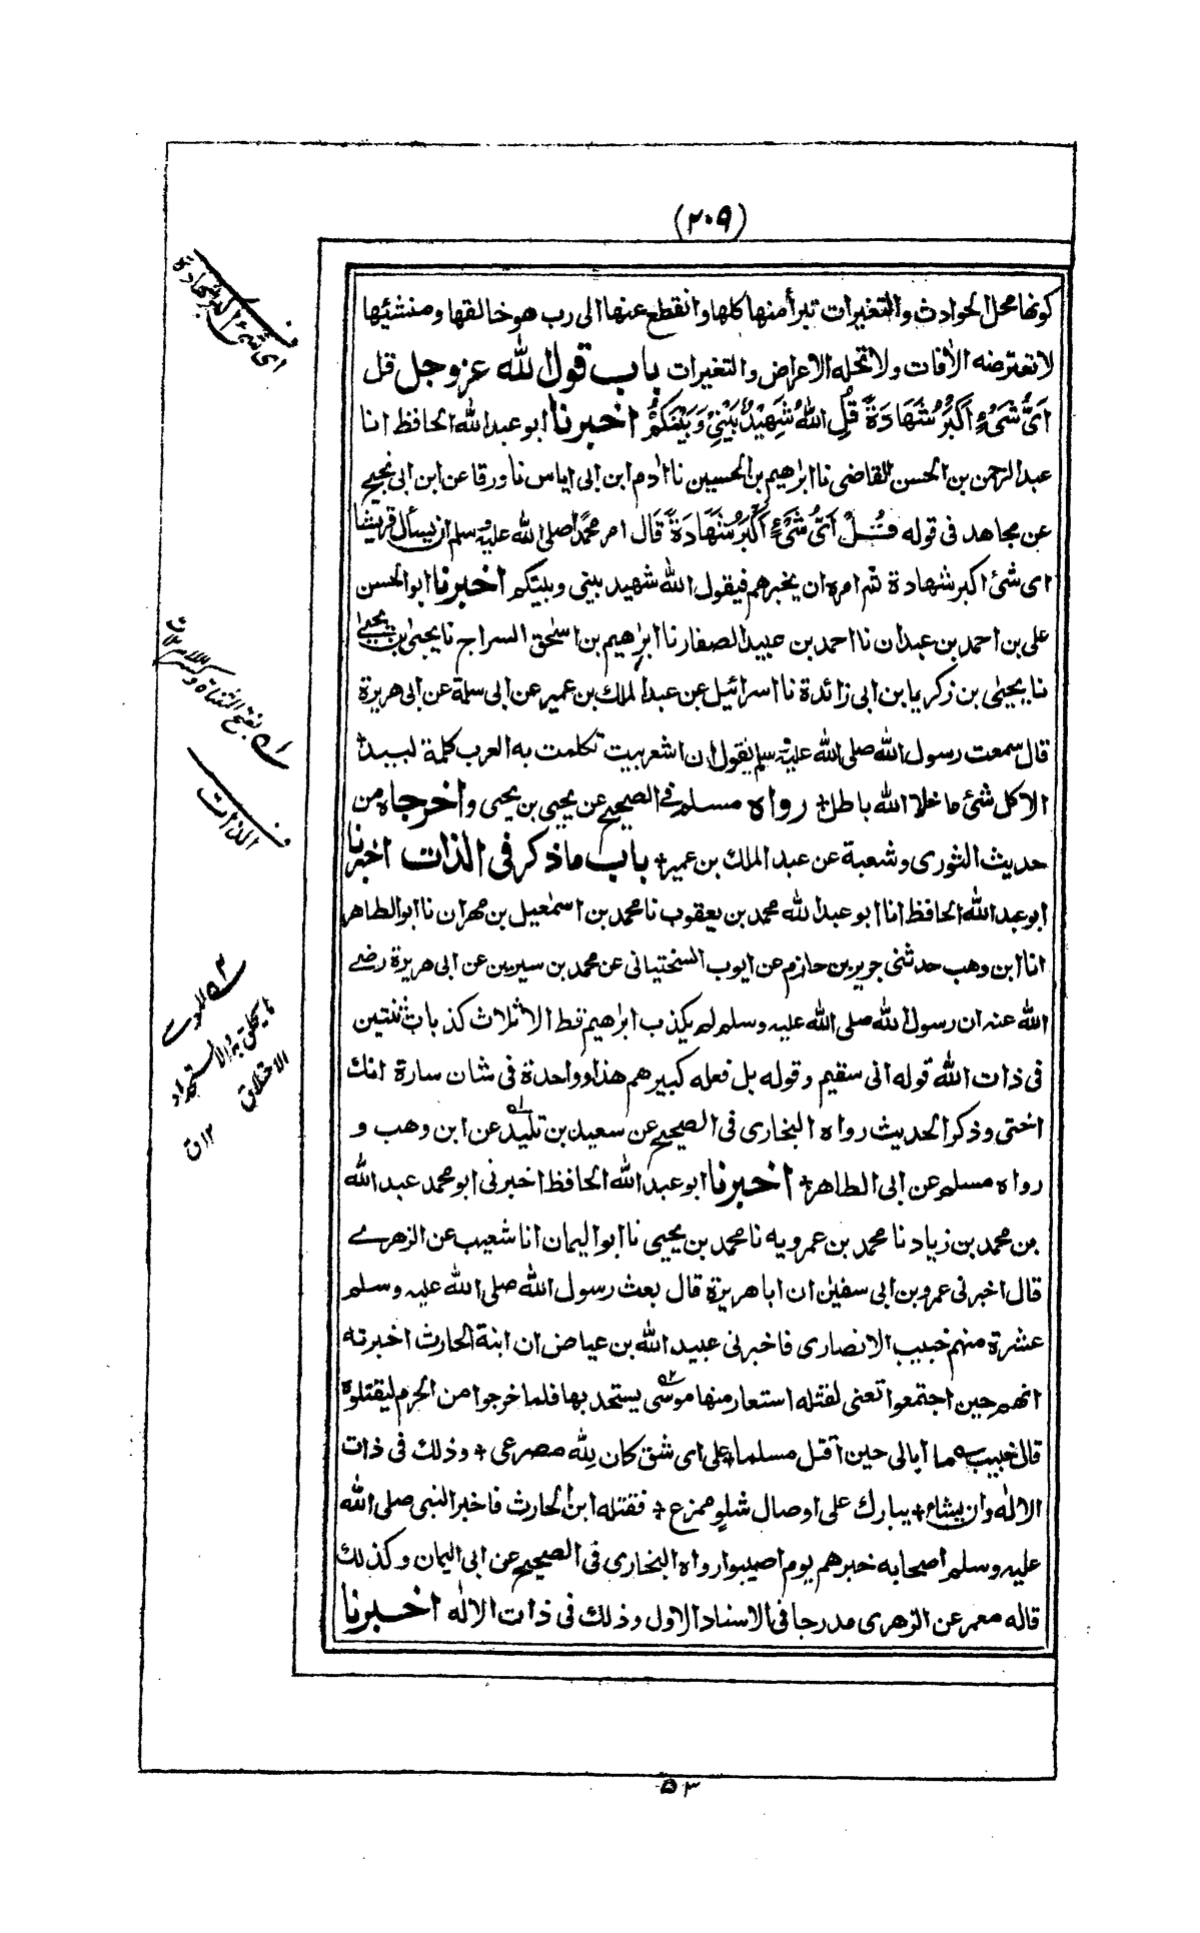 (٢٠٩)
كونها محل الحوادث والتغيرات تبرأ منها كلها وانقطع عنها الى رب هو خالقها ومنشئها
لا تعترضه الآفات ولا تحله الاعراض والتغيرات باب قول الله عزوجل قل
اَىُّ شَىْءٍ اَكْبَرُ شَهَادَةً قُلِ اللهُ شَهِيْدٌ بَيْنِىْ وَبَيْنَكُمْ اخبرنا ابو عبد الله الحافظ انا
عبد الرحمن بن الحسن القاضى نا ابراهيم بن الحسين نا ادم ابن ابى اياس نا ورقا عن ابن ابى نجيح
عن مجاهد فى قوله قُلْ اَىُّ شَىْءٍ اَكْبَرُ شَهَادَةً قَال امر محمدا صلى الله عليه وسلم ان يسأل قريشا
اى شئ اكبر شهادة ثم امره ان يخبرهم فيقول الله شهيد بينى وبينكم اخبرنا ابو الحسن
على بن احمد بن عبدان نا احمد بن عبيد الصفار نا ابرٰهيم بن اسحٰق السراج نا يحيىٰ بن يحيىٰ
نا يحيىٰ بن زكريا بن ابى زائدة نا اسرائيل عن عبد الملك بن عمير عن ابى سلمة عن ابى هريرة
قال سمعت رسول الله صلى الله عليه وسلم يقول ان اشعر بيت تكلمت به العرب كلمة لبيد+
الا كل شئ ما خلا الله باطل+ رواه مسلم فى الصحيح عن يحيى بن يحيى واخرجاه من
حديث الثورى وشعبة عن عبد الملك بن عمير+ باب ما ذكر فى الذات اخبرنا
ابو عبد الله الحافظ انا ابو عبد الله محمد بن يعقوب نا محمد بن اسمٰعيل بن مهران نا ابو الطاهر
انا ابن وهب حدثنى جرير بن حازم عن ايوب السختيانى عن محمد بن سيرين عن ابى هريرة رضے
الله عنه ان رسول الله صلى الله عليه وسلم لم يكذب ابراهيم قط الا ثلاث كذبات ثنتين
فى ذات الله قوله انى سقيم وقوله بل فعله كبيرهم هذا وواحدة فى شان سارة انك
اختى وذكر الحديث رواه البخارى فى الصحيح عن سعيد بن تليد عن ابن وهب و
رواه مسلم عن ابى الطاهر+ اخبرنا ابو عبد الله الحافظ اخبرنى ابو محمد عبد الله
بن محمد بن زياد نا محمد بن عمرويه نا محمد بن يحيى نا ابو اليمان انا شعيب عن الزهرے
قال اخبرنى عمرو بن ابى سفيٰن ان ابا هريرة قال بعث رسول الله صلى الله عليه وسلم
عشرة منهم خبيب الانصارى فاخبرنى عبيد الله بن عياض ان ابنة الحارث اخبرته
انهم حين اجتمعوا تعنى لقتله استعار منها موسٰى يستحد بها فلما خرجوا من الحرم ليقتلوه
قال خبيب ما ابالى حين اقتل مسلما+ على اى شق كان لله مصرعى+ وذلك فى ذات
الالٰه وان يشاء+ يبارك على اوصال شلو ممزع+ فقتله ابن الحارث فاخبر النبى صلى الله
عليه وسلم اصحابه خبرهم يوم اصيبوا رواه البخارى فى الصحيح عن ابى اليمان وكذلك
قاله معمر عن الزهرى مدرجا فى الاسناد الاول وذلك فى ذات الالٰه اخبرنا
اى شئ اكبر شهادة
الذات
الاخلاق
١٢ ق
٥٣